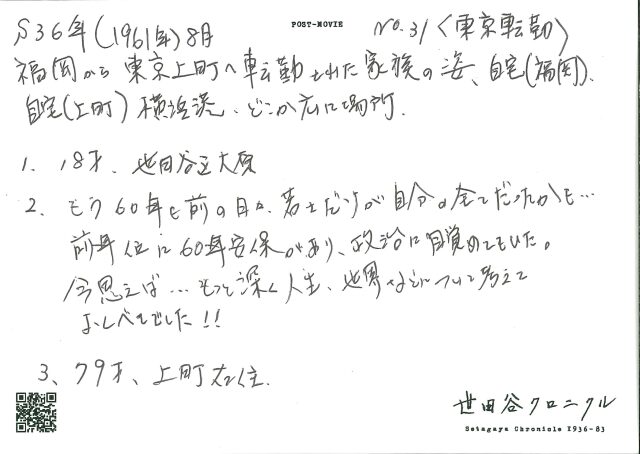 S36年(1961年)8月 POST-MOVIE No.31〈東京転勤〉
福岡から東京上町へ転勤された家族の姿、自宅(福岡)、
自宅(上町)横浜港、どこか広い場所.
1. 18才、世田谷区大原
2. もう60年も前の日々、若さだけが自分の全てだったかも…
前年位に60年安保があり、政治に目覚めてもいた。
今思えば…もっと深く人生、世界などについて考えて
おくべきでした!!
3、79才、上町在住.
世田谷クロニクル
Setagaya Chronicle 1936-83